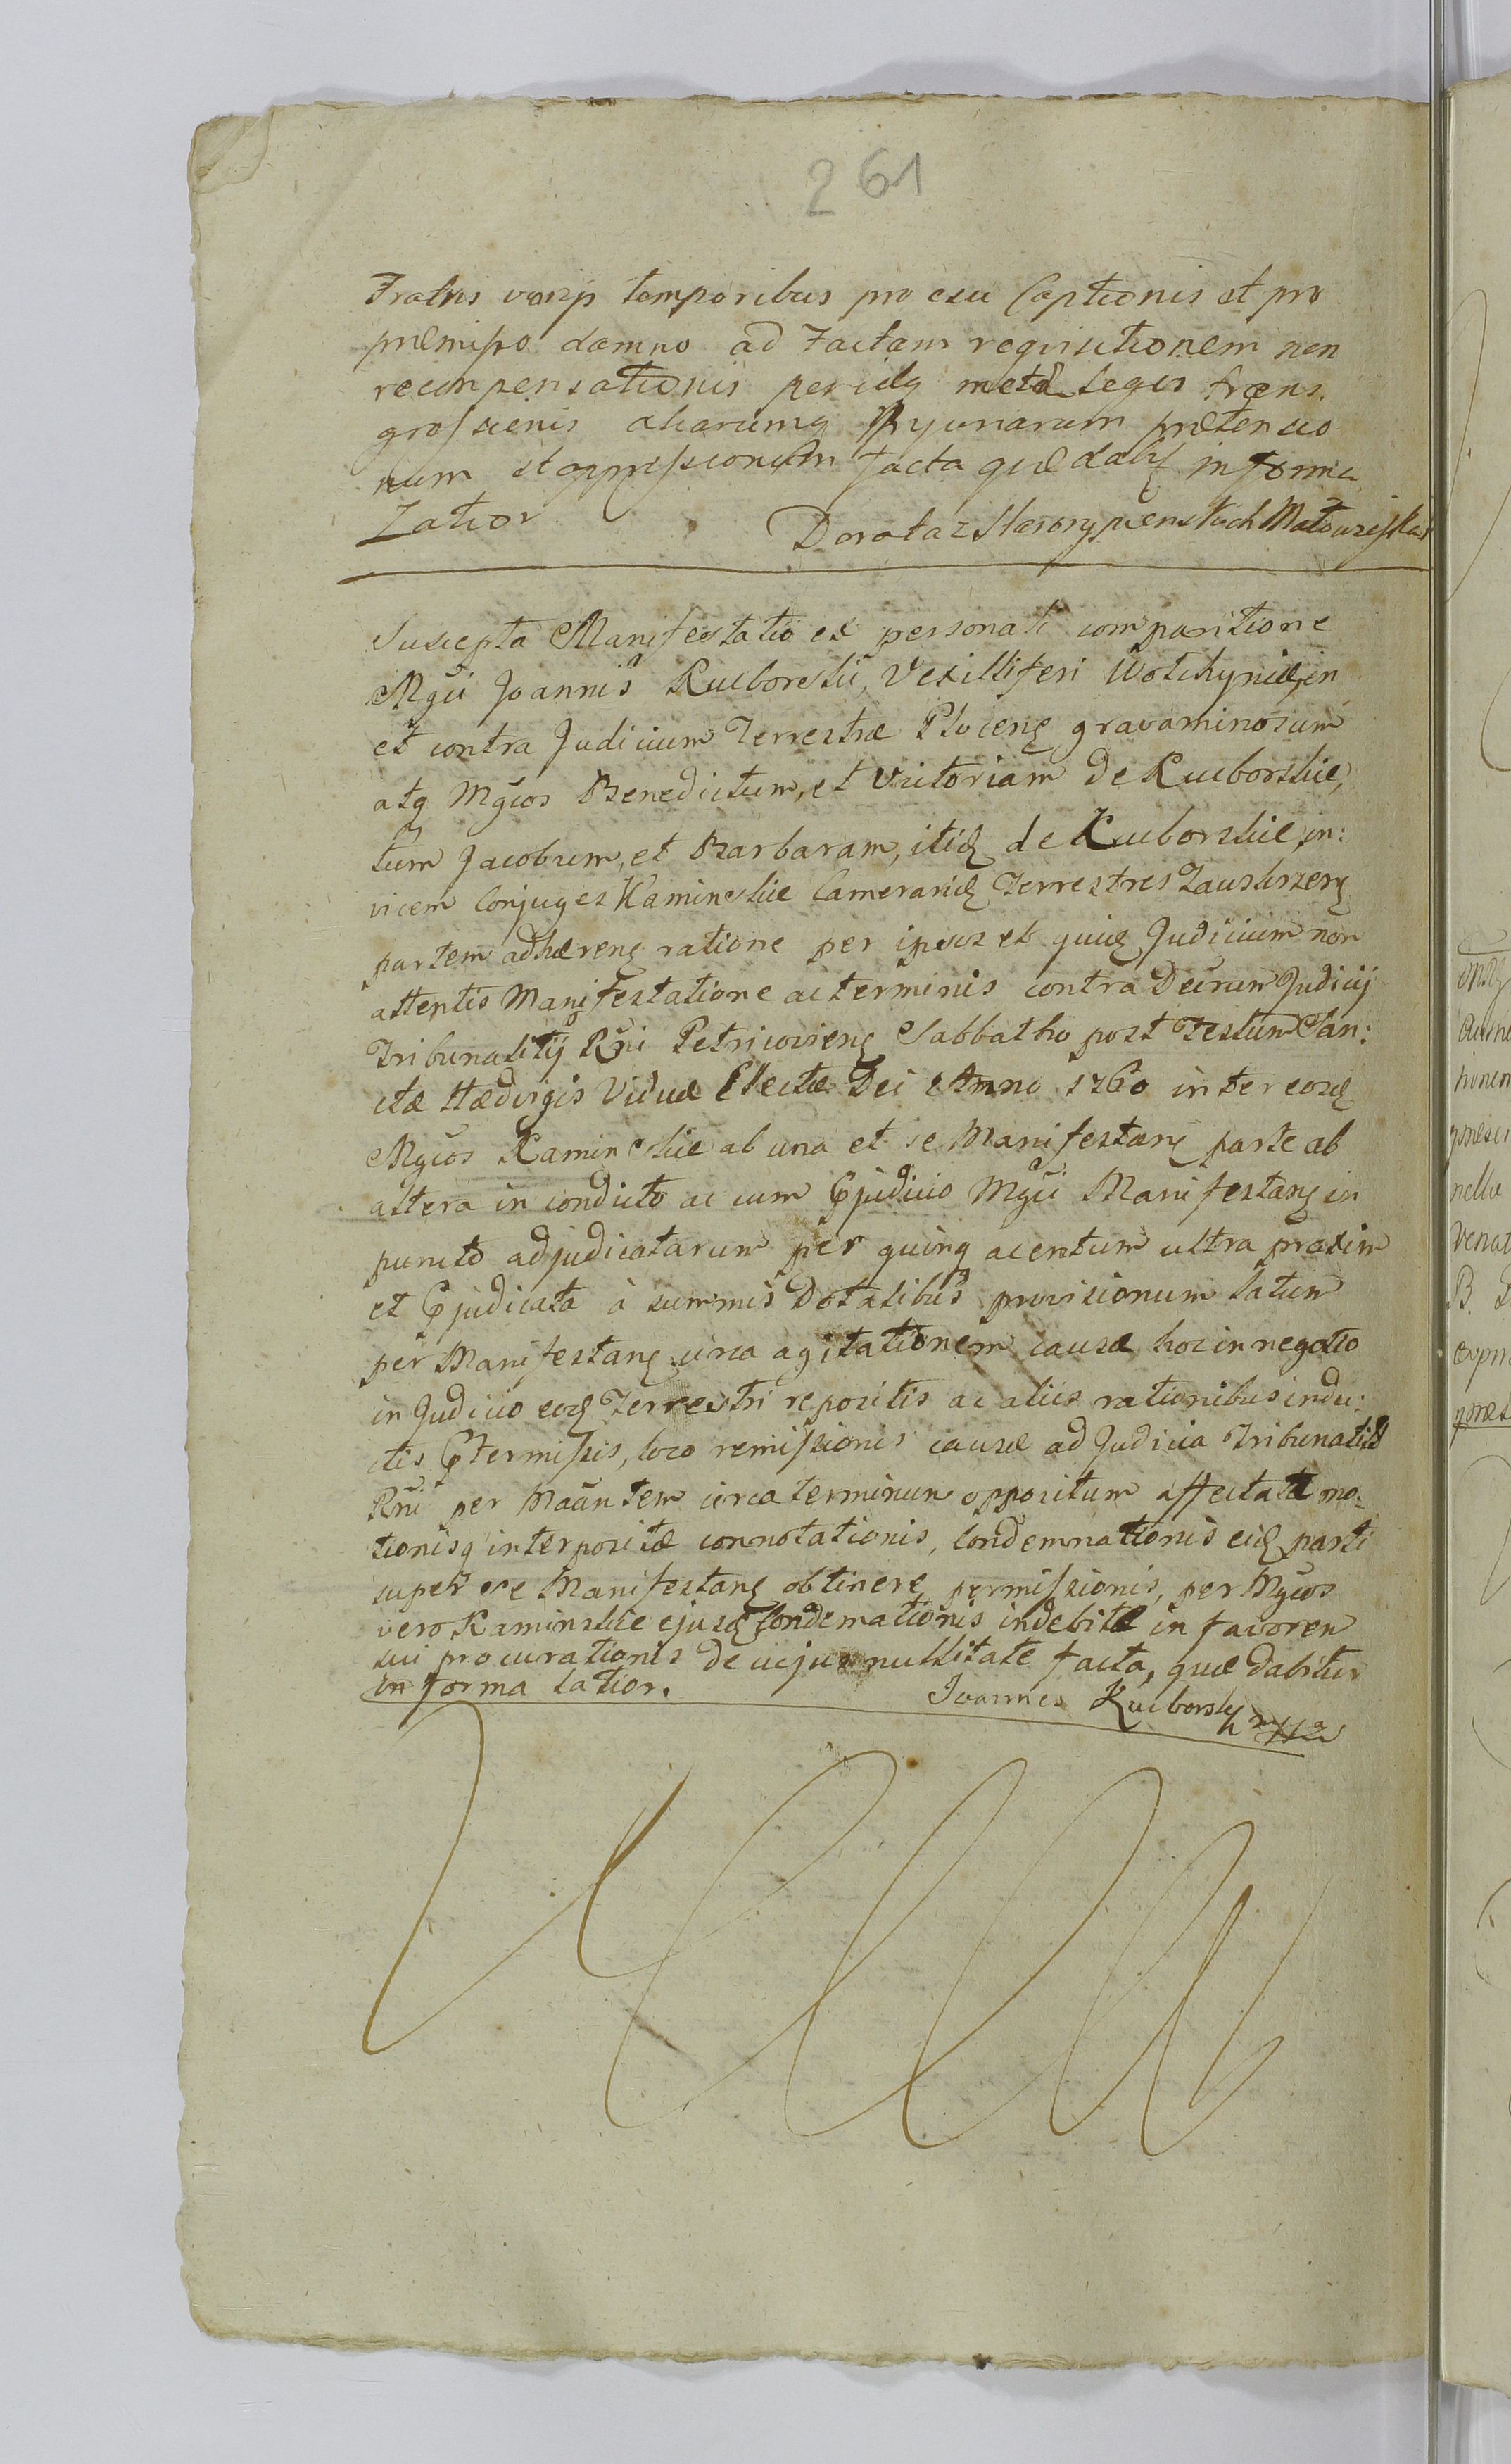 261
Fratris varijs temporibus pro esu Captionis et pro
præmisso damno ad factam requisitionem non
recompensationis metæ Legis trans,
grossionis aliarumq prætensio
num et oppressionum facta quæ dabiɫ in forma
Latior
Dorota z
Suscepta Manifestatio ex personali comparitione
Mgci Joannis Kuciborskii, Vexilliferi Wolchyniæ, in
et contra Judicium Terrestræ Plocenȩ gravaminosum
atq Mgcos Benedictum, et Victoriam de Kuciborskie,
tum Jacobum, et Barbaram, itidȩ de Kuciborskie in:
vicem Conjuges Kaminskie Cameraridȩ Terrestres Zauskrzenȩ
partem adhærenȩ ratione per ipsos et quidȩ Judicium non
attentis Manifestatione ac terminis contra Decrum Judicij
Tribunalitij Rni Petricovienȩ Sabbatho post Festum San:
ctæ Hædvigis Viduæ Electæ Dei Anno 1760 inter eosdȩ
Mgcos Kaminskie ab una et se Manifestanȩ parte ab
altera in condicto ac cum Pjudicio Mgci Manifestanȩ in
puncto adjudicatarum per quinq a centum ultra praxim
et Pjudicata à summis Dotalibus provisionum latum
per Manifestanȩ circa agitationem causæ hoc in negotio
in Judicio eodȩ Terrestri repositis ac aliis rationibus indu:
ctis Ptermissis, loco remissionis causæ ad Judicia Tribunalitia
Rni per Maantem circa terminum oppositum affectatæ mo:
tionisq interpositæ connotationis, Condemnationis eidȩ parti
super se Manifestanȩ obtinere permissionis, per Mgcos
vero Kaminskie ejusdȩ Condemationis indebitæ in favorem
sui procurationis de cujus nullitate facta, quæ dabitur
in forma latior.
Joannes Kuciborsky